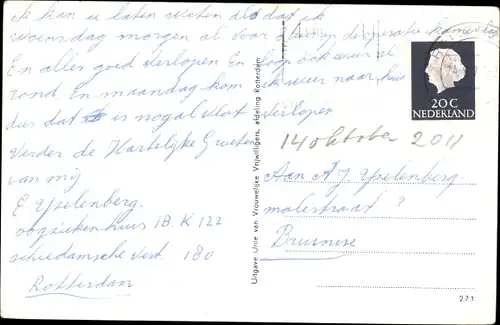 ik kan u laten weten dat ik
woensdag morgen al voor operatie kamer lag
En alles goed verlopen En loop ook weer al
rond En maandag kom ik weer naar huis
dus dat is nogal vlot verlopen
Verder de Hartelijke Groeten
van mij
E Yselenberg.
oogziekenhuis 1B K 122
schiedamsche vest 180
Rotterdam
Uitgave Unie van Vrouwelijke Vrijwilligers, afdeling Rotterdam
20 C
NEDERLAND
14 oktober 2011
Aan A J Yselenberg.
molestraat 7
Bruinisse
271